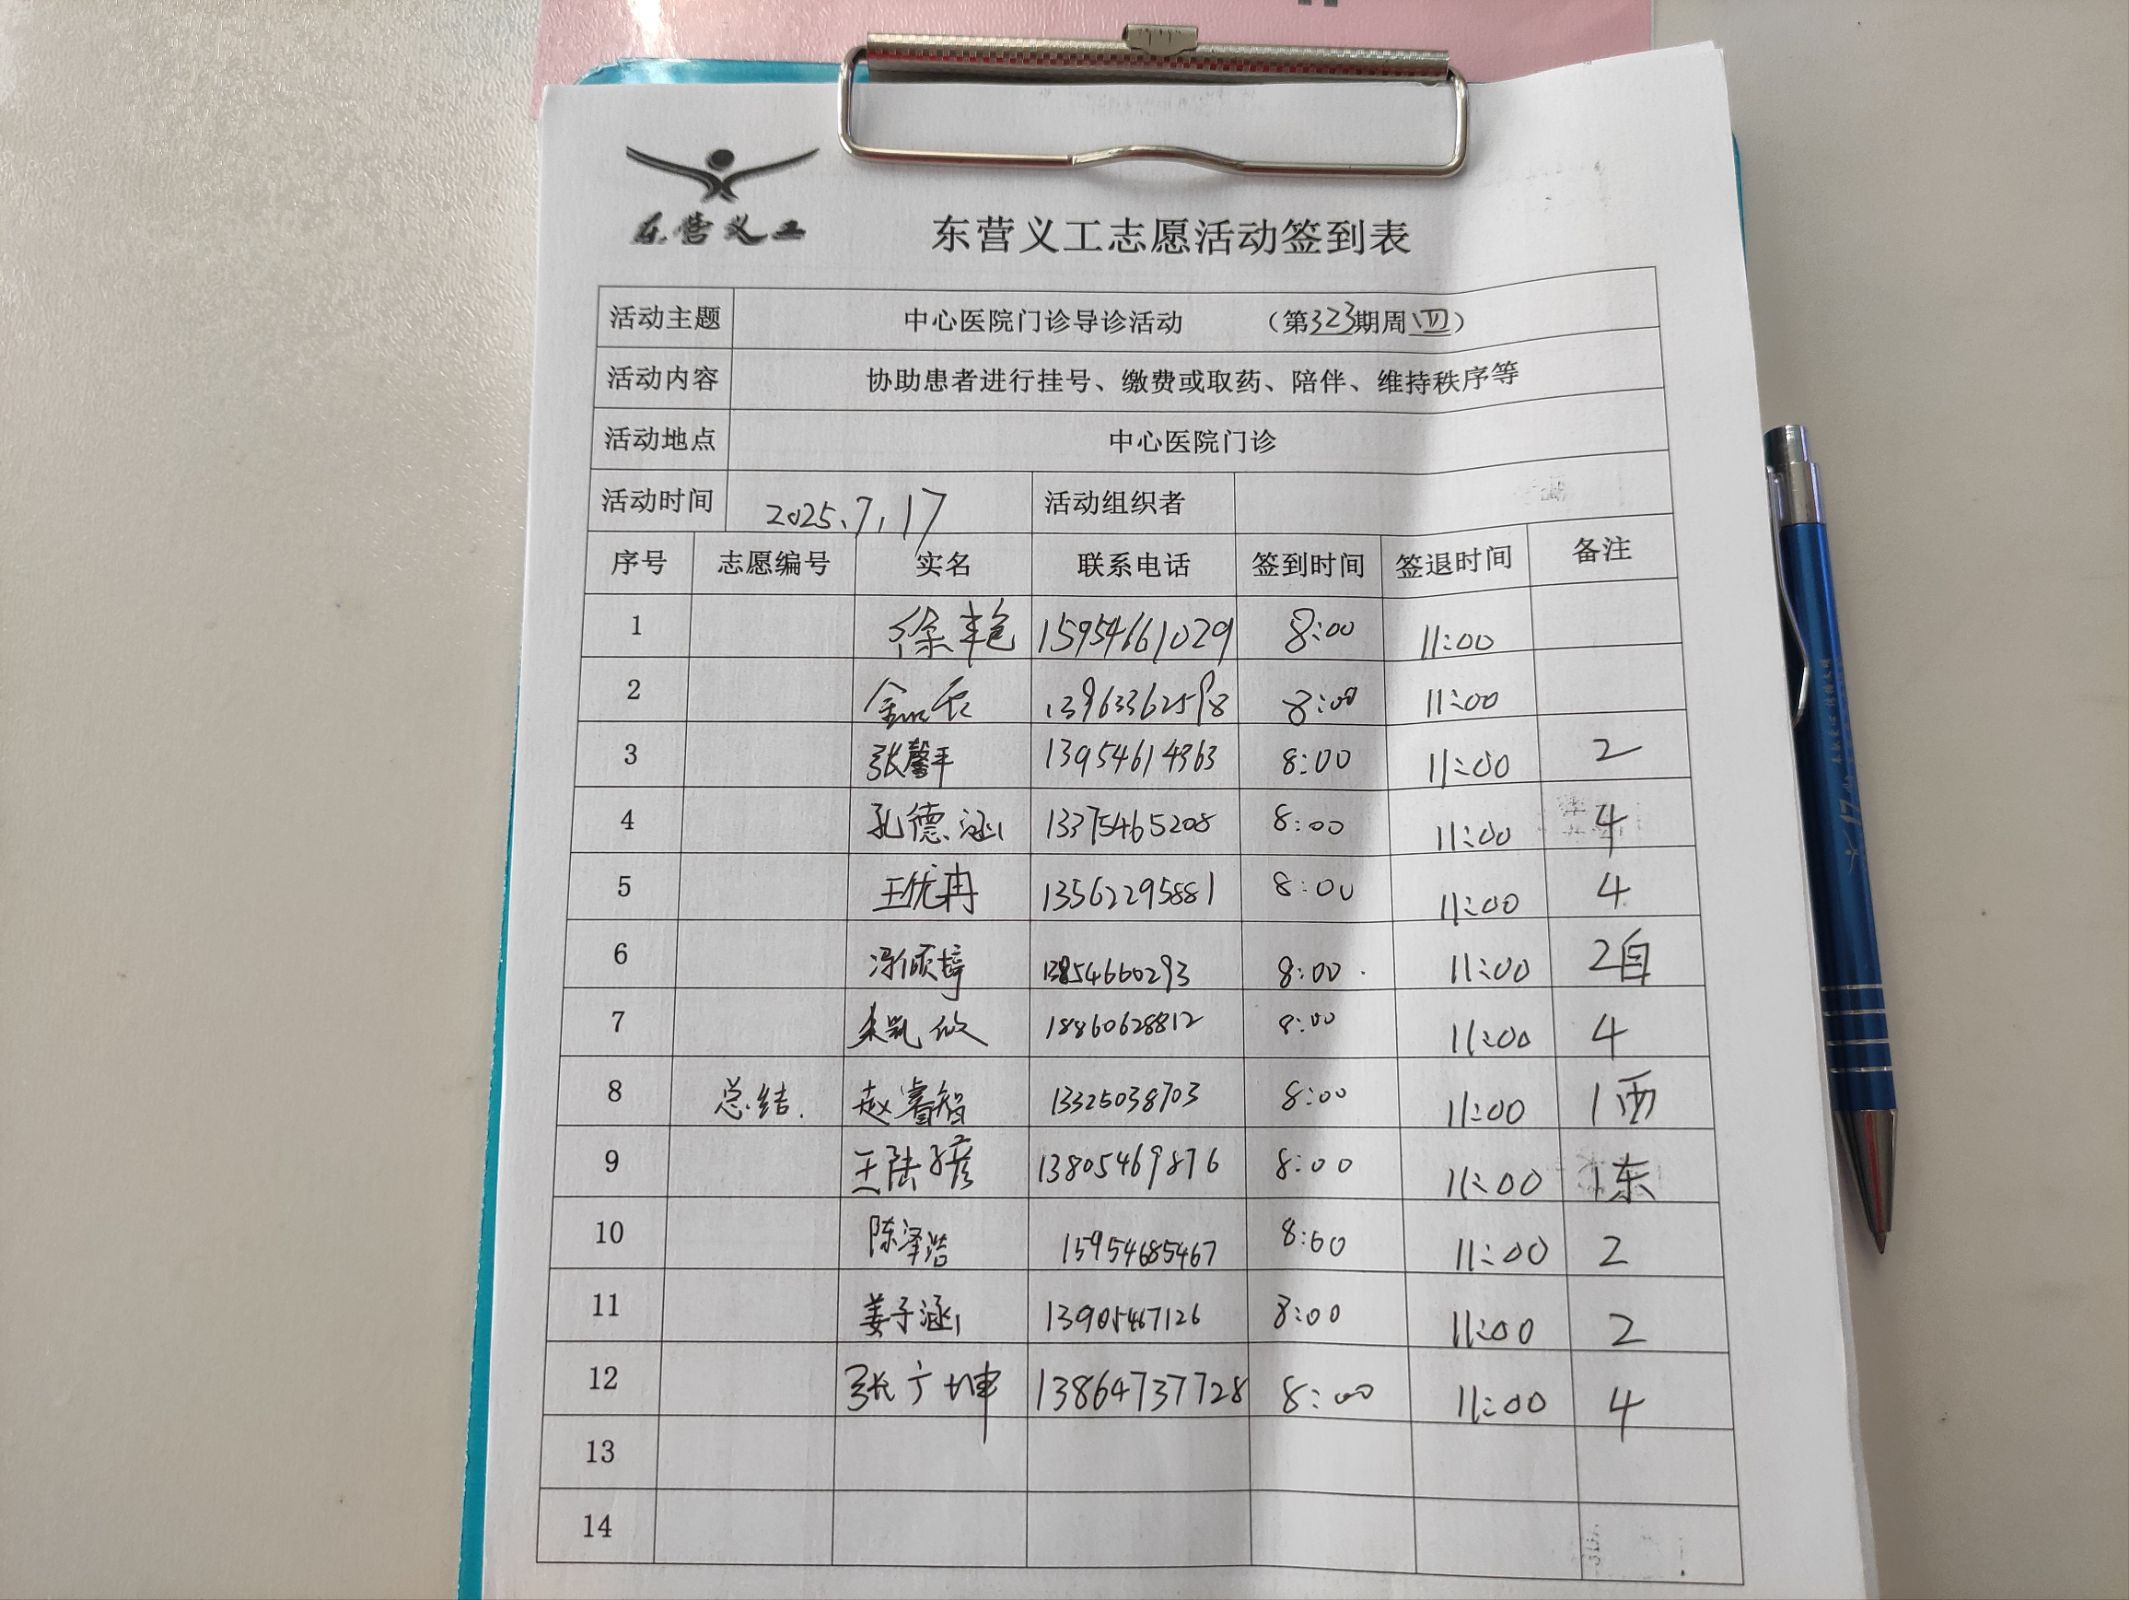 东营义工
东营义工志愿活动签到表
活动主题 中心医院门诊导诊活动 （第323期周四）
活动内容 协助患者进行挂号、缴费或取药、陪伴、维持秩序等
活动地点 中心医院门诊
活动时间 2025.7.17 活动组织者
序号 志愿编号 实名 联系电话 签到时间 签退时间 备注
1 徐艳 15954661029 8:00 11:00
2 13963362598 8:00 11:00
3 张馨平 13954614363 8:00 11:00 2
4 孔德涵 13375465208 8:00 11:00 4
5 王优冉 13562295881 8:00 11:00 4
6 13854660293 8:00 11:00 2自
7 18860628812 8:00 11:00 4
8 总结. 赵睿智 13325038703 8:00 11:00 1西
9 王陆彦 13805469876 8:00 11:00 1东
10 陈泽浩 15954685467 8:00 11:00 2
11 姜子涵 13905467126 8:00 11:00 2
12 张广坤 13864737728 8:00 11:00 4
13
14